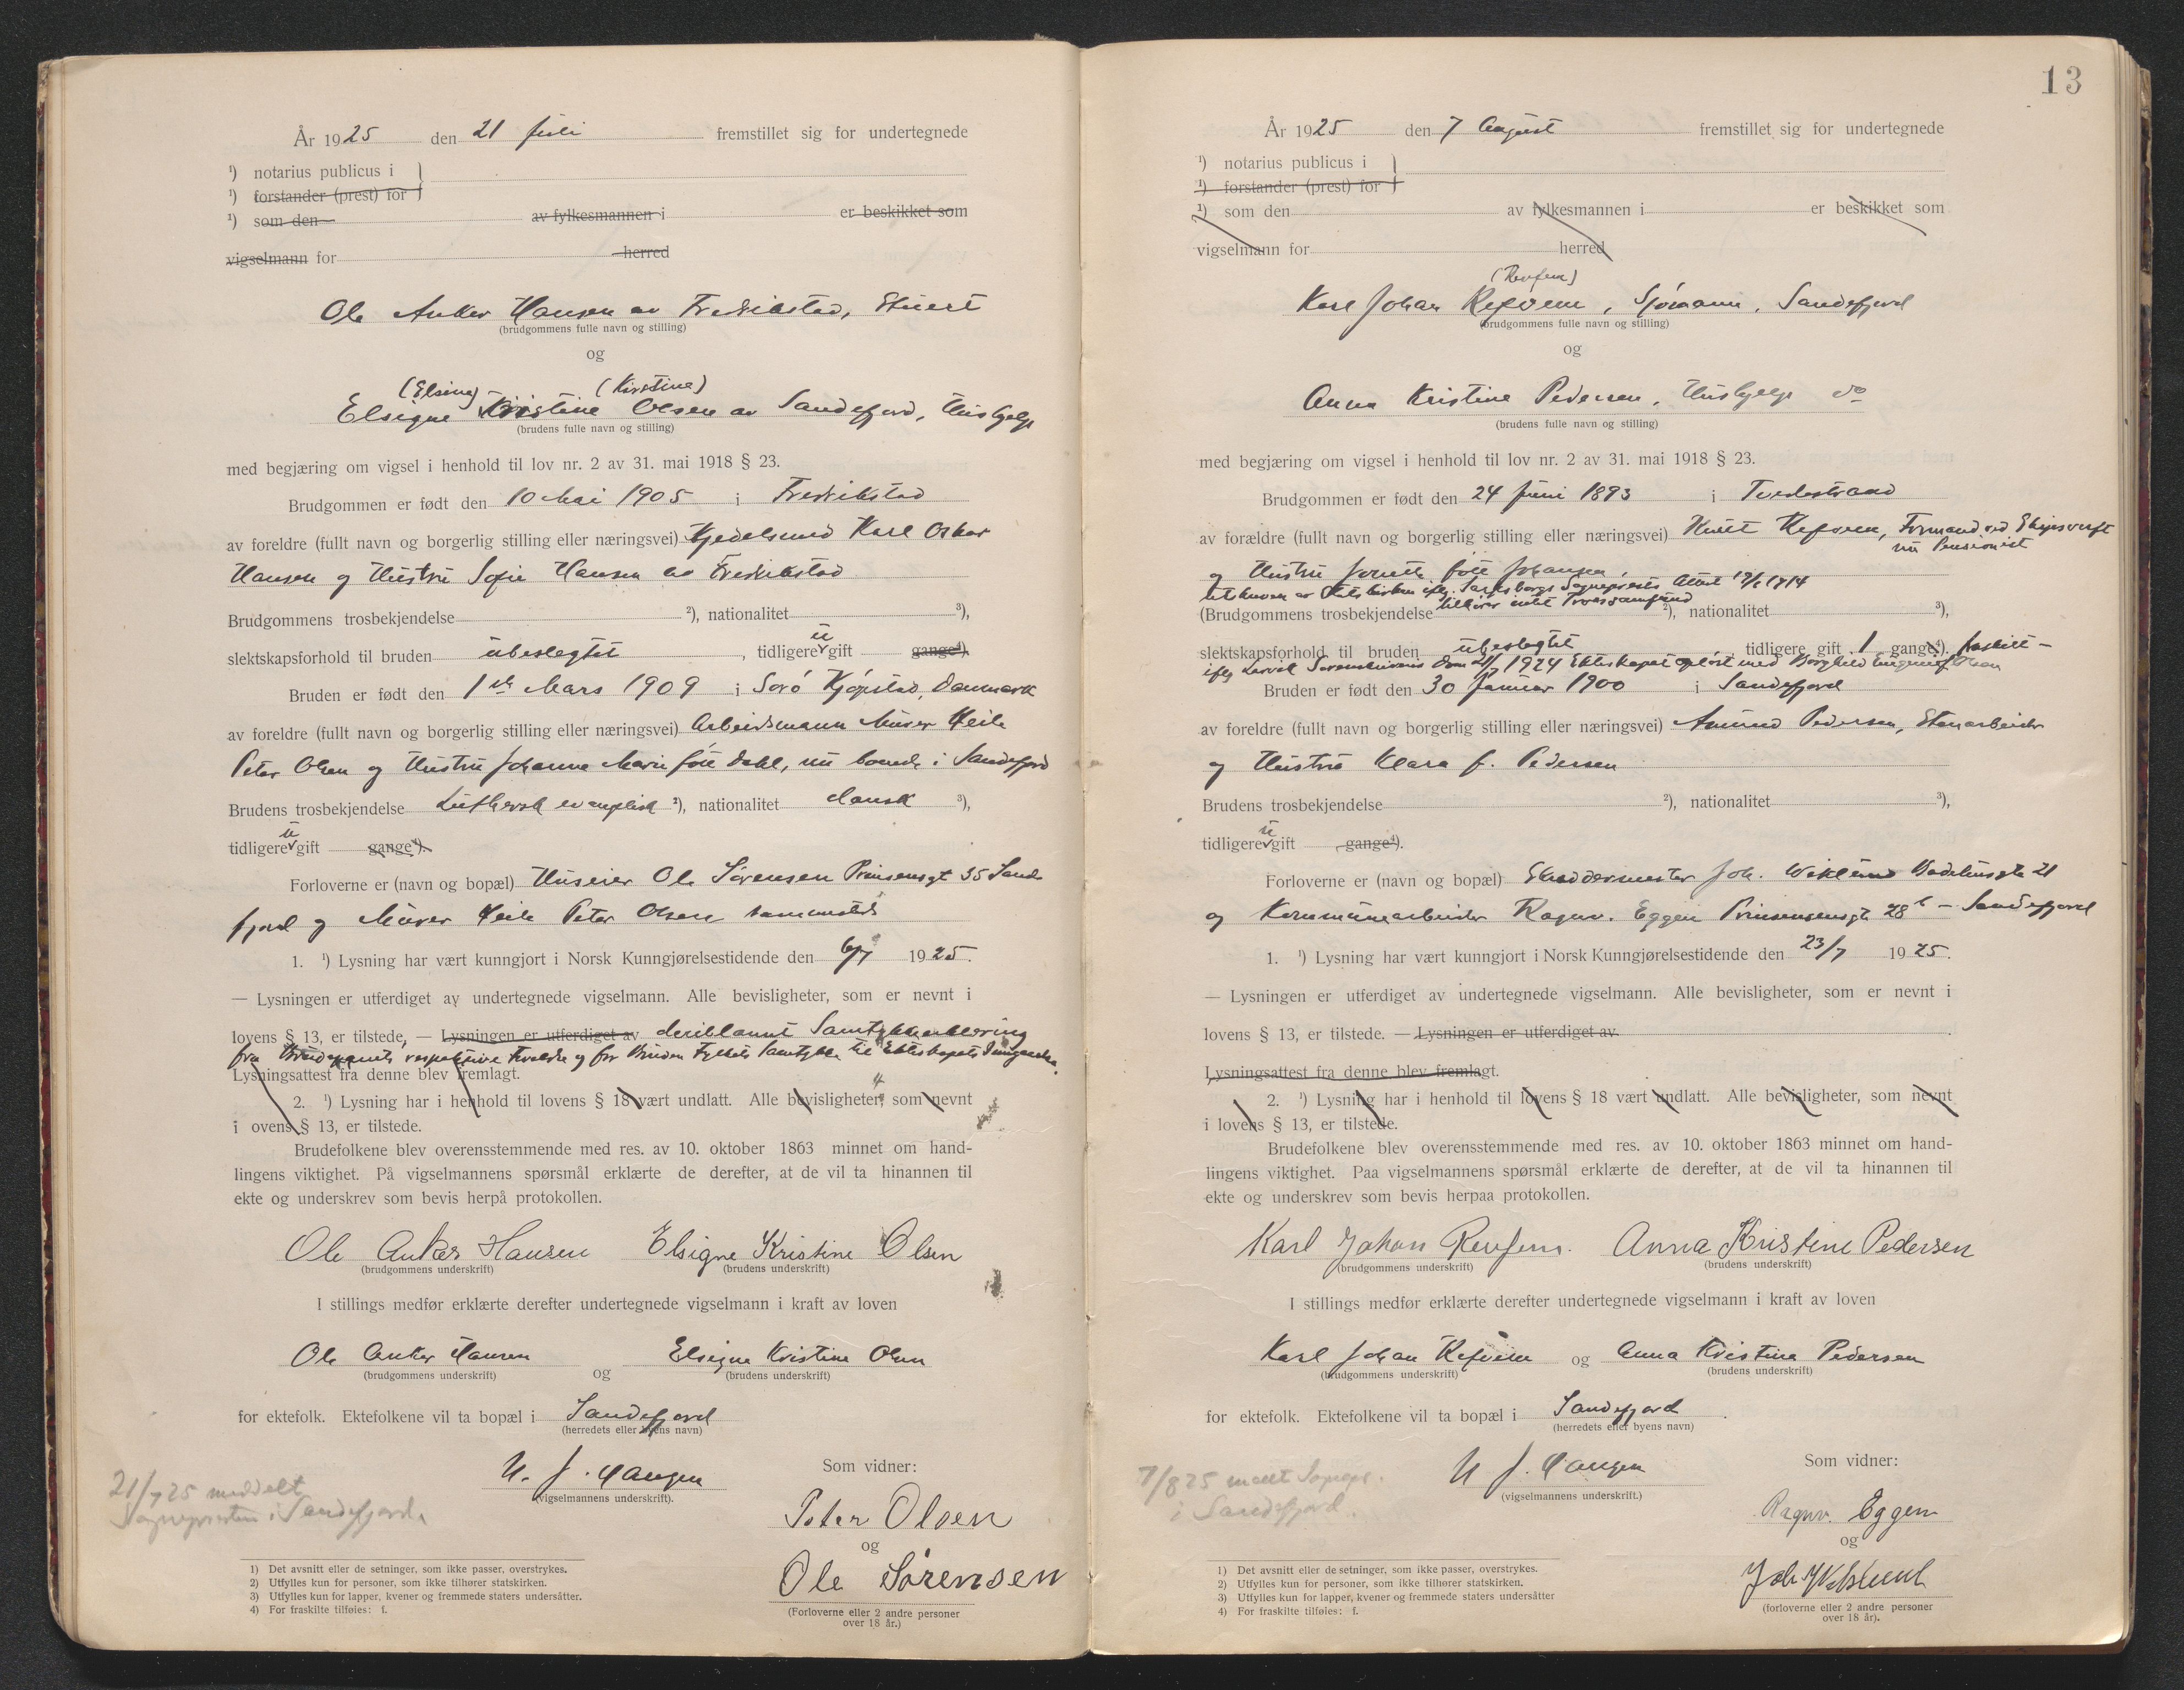 År 1925 den 21 Juli fremstillet sig for undertegnede
¹) notarius publicus i
¹) forstander (prest) for
¹) som den av fylkesmannen i er beskikket som
vigselmann for herred
Ole Anker Hansen av Fredrikstad, Stuert
(brudgommens fulle navn og stilling)
og
(Elsine) (Kirstine)
Elsigne Kristine Olsen av Sandefjord, Hushjelp
(brudens fulle navn og stilling)
med begjæring om vigsel i henhold til lov nr. 2 av 31. mai 1918 § 23.
Brudgommen er født den 10 Mai 1905 i Fredrikstad
av foreldre (fullt navn og borgerlig stilling eller næringsvei) Kjedelsmed Karl Oskar
Hansen og Hustru Sofie Hansen av Fredrikstad
Brudgommens trosbekjendelse ²), nationalitet ³),
slektskapsforhold til bruden ubeslegtet, tidligere u gift gange⁴).
Bruden er født den 1ste Mars 1909 i Sorö Kjöpstad, Danmark
av foreldre (fullt navn og borgerlig stilling eller næringsvei) Arbeidsmann Murer
Peter Olsen og Hustru Johanne Marie föd Dahl, nu boende i Sandefjord
Brudens trosbekjendelse Luthersk evangelisk ²), nationalitet dansk ³),
tidligere u gift gange⁴).
Forloverne er (navn og bopæl) Huseier Ole Sörensen Prinsensgt 35 Sande
fjord og Murer Peter Olsen sammesteds
1. ¹) Lysning har vært kunngjort i Norsk Kunngjørelsestidende den 6/7 1925.
— Lysningen er utferdiget av undertegnede vigselmann. Alle bevisligheter, som er nevnt i
lovens § 13, er tilstede, — Lysningen er utferdiget av deriblannt Samtykkeerklæring
fra Brudeparrets respektive Forældre og for Bruden Fylkets Samtykke til Ekteskapets Inngaaelse.
Lysningsattest fra denne blev fremlagt.
2. ¹) Lysning har i henhold til lovens § 18 vært undlatt. Alle bevisligheter, som nevnt
i ovens § 13, er tilstede.
Brudefolkene blev overensstemmende med res. av 10. oktober 1863 minnet om hand-
lingens viktighet. På vigselmannens spørsmål erklærte de derefter, at de vil ta hinannen til
ekte og underskrev som bevis herpå protokollen.
Ole Anker Hansen Elsigne Kristine Olsen
(brudgommens underskrift) (brudens underskrift)
I stillings medfør erklærte derefter undertegnede vigselmann i kraft av loven
Ole Anker Hansen og Elsigne Kristine Olsen
(brudgommens underskrift) (brudens underskrift)
for ektefolk. Ektefolkene vil ta bopæl i Sandefjord
(herredets eller byens navn)
(vigselmannens underskrift).
Som vidner:
21/7 25 meddelt
Sognepresten i Sandefjord.
Peter Olsen
og
Ole Sörensen
(Forloverne eller 2 andre personer
over 18 år.)
1) Det avsnitt eller de setninger, som ikke passer, overstrykes.
2) Utfylles kun for personer, som ikke tilhører statskirken.
3) Utfylles kun for lapper, kvener og fremmede staters undersåtter.
4) For fraskilte tilføies: f.
13
År 1925 den 7 August fremstillet sig for undertegnede
¹) notarius publicus i
¹) forstander (prest) for
¹) som den av fylkesmannen i er beskikket som
vigselmann for herred
Karl Johan Sjömann, Sandefjord
(brudgommens fulle navn og stilling)
og
Anna Kristine Pedersen, Hushjelp do
(brudens fulle navn og stilling)
med begjæring om vigsel i henhold til lov nr. 2 av 31. mai 1918 § 23.
Brudgommen er født den 24 Juni 1893 i Tvedestrand
av forældre (fullt navn og borgerlig stilling eller næringsvei) Knut Formand ved Skipsverft
nu Pensionist
og Hustru född Johansen,
utskreven av Statskirken ifölge Sarpsborgs Sogneprests Attest 1914
(Brudgommens trosbekjendelse tilhörer intet Trossamfund ²), nationalitet ³),
slektskapsforhold til bruden ubeslegtet, tidligere gift 1 gang⁴). fraskilt –
ifölge Larvik Sorenskrivers Dom 1924 Ekteskapet oplöst med Borghild Olsen
Bruden er født den 30 Januar 1900 i Sandefjord
av foreldre (fullt navn og borgerlig stilling eller næringsvei) Amund Pedersen, Stenarbeider
og Hustru Klara f. Pedersen
Brudens trosbekjendelse ²), nationalitet ³),
tidligere u gift gange⁴).
Forloverne er (navn og bopæl) Skreddermester Joh. Wiklund 21
og Kommunearbeider Ragnv. Eggen Prinsensgt 28 b – Sandefjord
1. ¹) Lysning har vært kunngjort i Norsk Kunngjørelsestidende den 23/7 1925.
— Lysningen er utferdiget av undertegnede vigselmann. Alle bevisligheter, som er nevnt i
lovens § 13, er tilstede. — Lysningen er utferdiget av
Lysningsattest fra denne blev fremlagt.
2. ¹) Lysning har i henhold til lovens § 18 vært undlatt. Alle bevisligheter, som nevnt
i lovens § 13, er tilstede.
Brudefolkene blev overensstemmende med res. av 10. oktober 1863 minnet om hand-
lingens viktighet. Paa vigselmannens spørsmål erklærte de derefter, at de vil ta hinannen til
ekte og underskrev som bevis herpaa protokollen.
Karl Johan Anna Kristine Pedersen
(brudgommens underskrift) (brudens underskrift)
I stillings medfør erklærte derefter undertegnede vigselmann i kraft av loven
Karl Johan og Anna Kristine Pedersen
(brudgommens underskrift) (brudens underskrift)
for ektefolk. Ektefolkene vil ta bopæl i Sandefjord.
(herredets eller byens navn)
(vigselmannens underskrift.)
Som vidner:
7/8 25 i Sandefjord.
Ragnv. Eggen
og
Joh Wiklund
(forloverne eller 2 andre personer
over 18 år).
1) Det avsnitt eller de setninger, som ikke passer, overstrykes.
2) Utfylles kun for personer, som ikke tilhører statskirken.
3) Utfylles kun for lapper, kvener og fremmede staters undersåtter
4) For fraskilte tilføies: f.